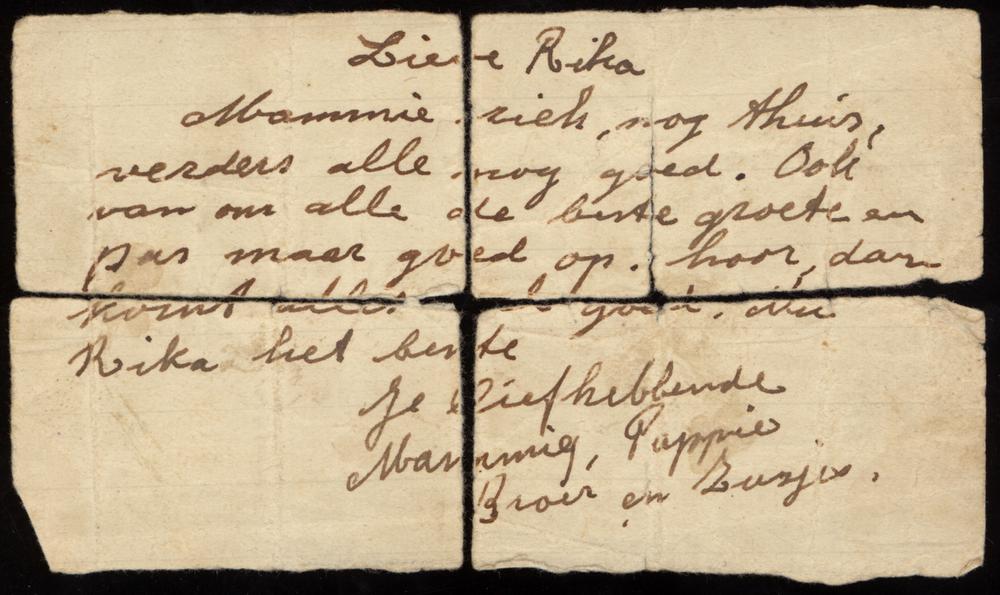 Lieve Rika
Mammie ziek, nog thuis,
verders alle nog goed. Ook
van ons alle de beste groete en
pas maar goed op. hoor, dan
komt alles goed. Nu
Rika het beste
Je liefhebbende
Mammie, Pappie
Broer en Zusjes.